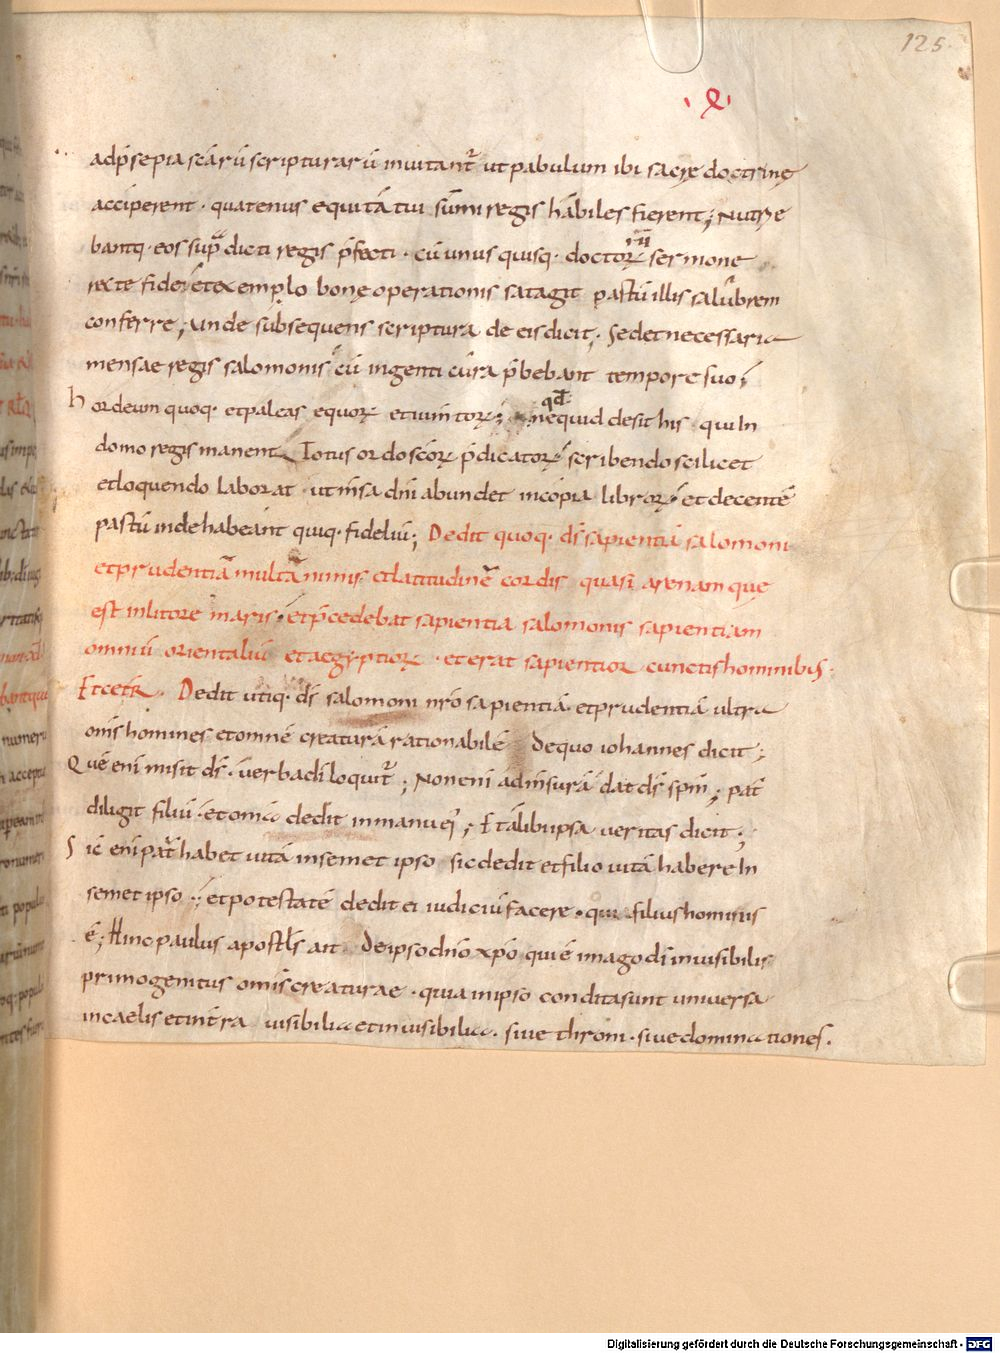 125
adp̄sepia scārū scripturarū inuitant̄ ut pabulum ibi sacrę doctrinę
acciperent · quatenus equitātui sūmi regis hābiles fierent ; Nutrie
bantq · eos sup̄ dicti regis p̄fecti · cū unus quisq · doctorꝝ sermone
recte fidei et exemplo bonę operationis satagit pastū illis salubrem
conferre ; unde subsequens scriptura de eis dicit ; Sed et necessaria
mensae regis salomonis cū ingenti cura p̄bebant tempore suo ;
hordeum quoq · et paleas equorꝝ et iumtorꝝ ; nequid desit his qui In
qd̄
domo regis manent Totus ordo sc̄orꝝ p̄dicatorꝝ scribendo scilicet
et loquendo laborat · ut īnsa dn̄i abundet incopia librorꝝ et decentē
pastū inde habeant quiq · fideliū ; Dedit quoq · ds̄ sapientiā salomoni
et prudentiā multā nimis et latitudinē cordis quasi arenam que
est inlitore maris · et p̄cedebat sapientia salomonis sapientiam
omniū orientaliū et aegyptiorꝝ · et erat sapientior cunctis hominibus ·
Et cetꝝ · Dedit utiq · ds̄ salomoni nr̄o sapientiā · et prudentiā ultra
om̄s homines et omnē creaturā rationabilē De quo iohannes dicit ;
Quē eni misit ds̄ · uerba dī loquit̄ ; Non eni ad m̄surā dat ds̄ sp̄m ; pat̄
diligit filiū · et om̄ia dedit inmanu ei ; Et alibi ipsa ueritas dicit ;
Sic̄ eni pat̄ habet uitā insemet ipso sic dedit et filio uitā habere In
semet ipso ; et potestatē dedit ei iudiciū facere · qui filius hominis
ē ; Hinc paulus apostl̄s ait De ipso dn̄o xp̄o qui ē imago dī inuisibilis
primogenitus om̄is creaturae · quia inipso condita sunt uniuersa
incaelis et int̄ra uisibilia et inuisibilia · siue throni · siue dominationes ·
Digitalisierung gefördert durch die Deutsche Forschungsgemeinschaft - DFG